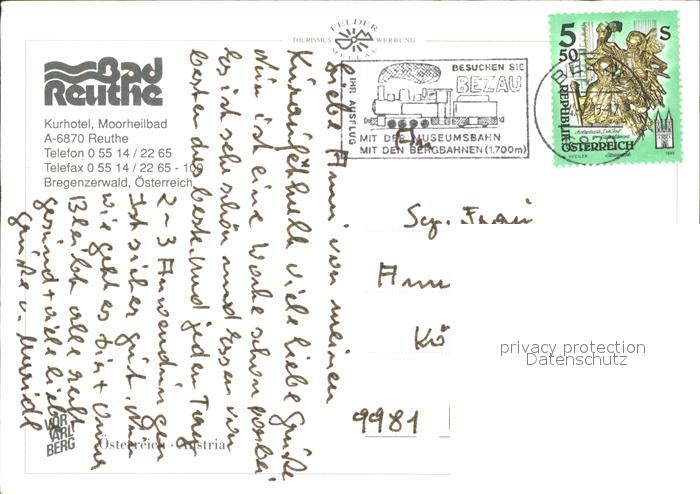 FELDER
TOURISMUS WERBUNG
METZLER
Bad
Reuthe
Kurhotel, Moorheilbad
A-6870 Reuthe
Telefon 0 55 14 / 22 65
Telefax 0 55 14 / 22 65 - 109
Bregenzerwald, Österreich
BESUCHEN SIE
BEZAU
IHR AUSFLUG
MIT DER MUSEUMSBAHN
MIT DEN BERGBAHNEN (1.700m)
5 S
50
REPUBLIK
ÖSTERREICH
Liebe Anni, von meinen
Kuraufenthalt viele liebe Grüße
Nun ist eine Woche schon vorbei
Es ist sehr schön und Essen vom
besten das beste. Und jeden Tag
2-3 Anwendungen
Ist sicher gut. Nun
wie geht es dir +
Bleibt alle recht
gesund + viele liebe
Grüße v.
An
Sgr. Frau
Ann
Kö
9981
privacy protection
Datenschutz
VOR
ARL
BERG
Österreich · Austria